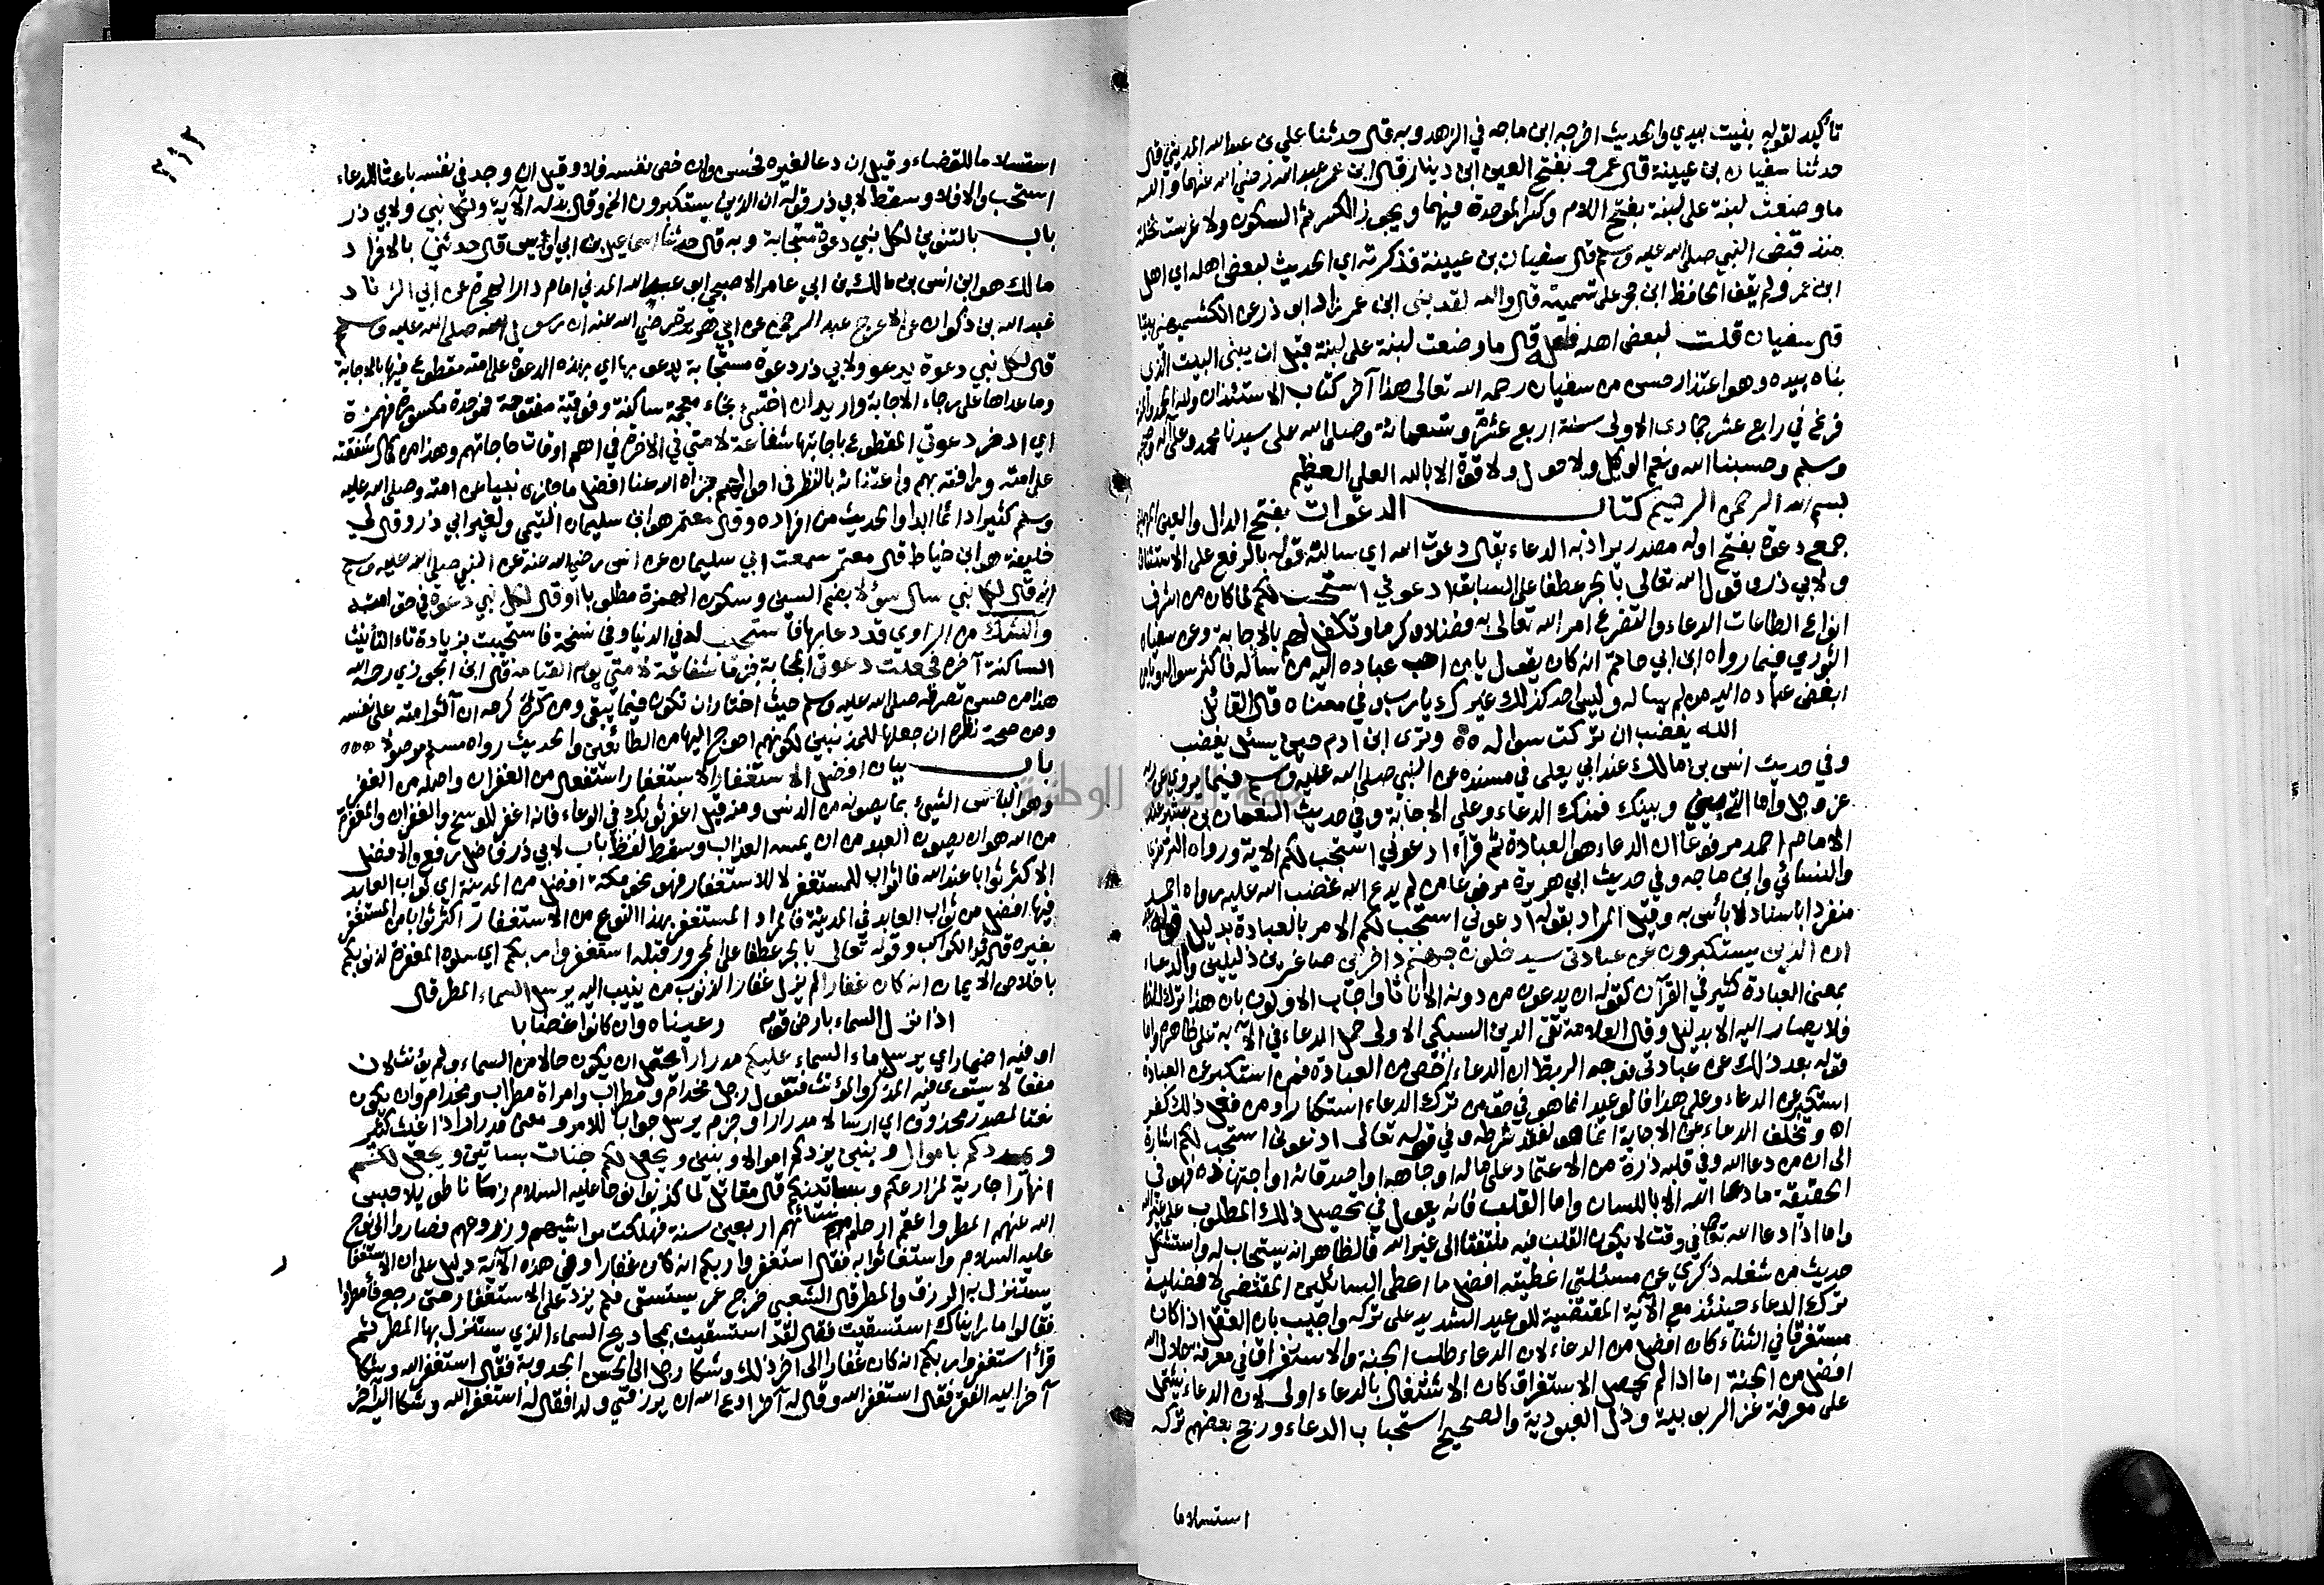 تأكيد لقوله بنيت بيدي والحديث اخرجه ابن ماجه في الزهد وبه قال حدثنا علي بن عبد الله المديني قال
حدثنا سفيان بن عيينة قال عمرو بفتح العين ابن دينار قال ابن عمر عبد الله رضي الله عنهما والله
ما وضعت لبنة على لبنة بفتح اللام وكسر الموحدة فيهما ويجوز الكسر ثم السكون ولا غرست نخلة
منذ قبض النبي صلى الله عليه وسلم قال سفيان بن عيينة فذكرته اي الحديث لبعض اهله اي اهل
ابن عمر ولم يقف الحافظ ابن حجر على تسميته قال والله لقد بنى ابن عمر زاد ابو ذر عن الكشميهني بيتا
قال سفيان قلت لبعض اهله فلعله قال ما وضعت لبنة على لبنة قبل ان يبني البيت الذي
بناه بيده وهو اعتذار حسن من سفيان رحمه الله تعالى هذا آخر كتاب الاستئذان ولله الحمد
فرغ في رابع عشر جمادى الاولى سنة اربع عشرة وتسعمائة وصلى الله على سيدنا محمد وعلى آله وصحبه
وسلم وحسبنا الله ونعم الوكيل ولا حول ولا قوة الا بالله العلي العظيم
بسم الله الرحمن الرحيم كتاب الدعوات بفتح الدال والعين المهملتين
جمع دعوة بفتح اوله مصدر يراد به الدعاء يقال دعوت الله اي سالته قوله بالرفع على الاستئناف
ولابي ذر وقول الله تعالى بالجر عطفا على السابق ادعوني استجب لكم لما كان من اشرف
انواع الطاعات الدعاء والتضرع امر الله تعالى به فضلا وكرما وتكفل لهم بالاجابة وعن سفيان
الثوري فيما رواه ابن ابي حاتم انه كان يقول يا من احب عباده اليه من سأله فاكثر سواله ويا من
ابغض عباده اليه من لم يساله وليس احد كذلك غيرك يا رب وفي معناه قال القائل
الله يغضب ان تركت سواله ٥٥ وترى ابن ادم حين يسئل يغضب
وفي حديث انس بن مالك عند ابي يعلى في مسنده عن النبي صلى الله عليه وسلم فيما يروي عن ربه
عز وجل واما التي بيني وبينك فمنك الدعاء وعلي الاجابة وفي حديث النعمان بن بشير عند
الامام احمد مرفوعا ان الدعاء هو العبادة ثم قرأ ادعوني استجب لكم الاية ورواه الترمذي
والنسائي وابن ماجه وفي حديث ابي هريرة مرفوعا من لم يدع الله غضب الله عليه رواه احمد
منفردا باسناد لا بأس به وقيل المراد بقوله ادعوني استجب لكم الامر بالعبادة بدليل قوله
ان الذين يستكبرون عن عبادتي سيدخلون جهنم داخرين صاغرين ذليلين والدعاء
بمعنى العبادة كثير في القرآن كقوله ان يدعون من دونه الا اناثا واجاب الاولون بان هذا ترك للظاهر
فلا يصار اليه الا بدليل وقال العلامة تقي الدين السبكي الاولى حمل الدعاء في الآية على ظاهره واما
قوله بعد ذلك عن عبادتي فوجه الربط ان الدعاء اخص من العبادة فمن استكبر عن العبادة
استكبر عن الدعاء وعلى هذا فالوعيد انما هو في حق من ترك الدعاء استكبارا ومن فعل ذلك كفر
اه وتخلف الدعاء عن الاجابة انما هو لفقد شرطه وفي قوله تعالى ادعوني استجب لكم اشارة
الى ان من دعا الله وفي قلبه ذرة من الاعتماد على ماله او جاهه او اصدقائه او اجتهاده فهو في
الحقيقة ما دعا الله الا باللسان واما القلب فانه يعول في تحصيل ذلك المطلوب على غير الله
واما اذا دعا الله تعالى في وقت لا يكون القلب فيه ملتفتا الى غير الله فالظاهر انه يستجاب له واستشكل
حديث من شغله ذكري عن مسئلتي اعطيته افضل ما اعطي السائلين المقتضي لافضلية
ترك الدعاء حينئذ مع الآية المقتضية للوعيد الشديد على تركه واجيب بان العقل اذا كان
مستغرقا في الثناء كان افضل من الدعاء لان الدعاء طلب الجنة والاستغراق في معرفة جلال الله
افضل من الجنة اما اذا لم يحصل الاستغراق كان الاشتغال بالدعاء اولى لان الدعاء يشتمل
على معرفة عز الربوبية وذل العبودية والصحيح استحباب الدعاء ورجح بعضهم تركه
استسلاما
٣١٢
استسلاما للقضاء وقيل ان دعا لغيره فحسن وان خص نفسه فلا وقيل ان وجد في نفسه باعثا للدعاء
استحب والا فلا وسقط لابي ذر قوله ان الذين يستكبرون الخ وقال بدله الآية ولكل نبي ولابي ذر
باب بالتنوين لكل نبي دعوة مستجابة وبه قال حدثنا اسماعيل بن ابي اويس قال حدثني بالافراد
مالك هو ابن انس بن مالك بن ابي عامر الاصبحي ابو عبد الله المدني امام دار الهجرة عن ابي الزناد
عبد الله بن ذكوان عن الاعرج عبد الرحمن عن ابي هريرة رضي الله عنه ان رسول الله صلى الله عليه وسلم
قال لكل نبي دعوة يدعو ولابي ذر دعوة مستجابة يدعو بها اي بهذه الدعوة على امته مقطوع فيها بالاجابة
وما عداها على رجاء الاجابة واريد ان اختبئ بخاء معجمة ساكنة وفوقية مفتوحة فموحدة مكسورة فهمزة
اي ادخر دعوتي المقطوع باجابتها شفاعة لامتي في الاخرة في اهم اوقات حاجاتهم وهذا من كمال شفقته
على امته ورافته بهم واعتنائه بالنظر في احوالهم جزاه الله عنا افضل ما جازى نبيا عن امته وصلى الله عليه
وسلم كثيرا دائما ابدا والحديث من افراده وقال معتمر هو ابن سليمان التيمي ولغير ابي ذر وقال لي
خليفة هو ابن خياط قال معتمر سمعت ابي سليمان عن انس رضي الله عنه عن النبي صلى الله عليه وسلم
انه قال لكل نبي سال سؤلا بضم السين وسكون الهمزة مطلوبا او قال لكل نبي دعوة في حق امته
والشك من الراوي قد دعا بها فاستجيب له في الدنيا وفي نسخة فاستجيبت بزيادة تاء التأنيث
الساكنة آخره فجعلت دعوتي المجابة شفاعة لامتي يوم القيامة قال ابن الجوزي رحمه الله
هذا من حسن تصرفه صلى الله عليه وسلم حيث اختار ان تكون فيما يبقى ومن كثرة كرمه ان آثر امته على نفسه
ومن صحة نظره ان جعلها للمذنبين لكونهم احوج اليها من الطائعين والحديث رواه مسلم موصولا ٥٥٥
باب بيان افضل الاستغفار الاستغفار استفعال من الغفران واصله من الغفر
وهو الباس الشيء بما يصونه من الدنس ومنه قيل اغفر ثوبك في الوعاء فانه اغفر للوسخ والغفران والمغفرة
من الله هو ان يصون العبد من ان يمسه العذاب وسقط لفظ باب لابي ذر فافضل رفع والافضل
الاكثر ثوابا عند الله فالثواب للمستغفر لا للاستغفار فهو نحو مكة افضل من المدينة اي ثواب العابد
فيها افضل من ثواب العابد في المدينة فالمراد المستغفر بهذا النوع من الاستغفار اكثر ثوابا من المستغفر
بغيره قاله في الكواكب وقوله تعالى بالجر عطفا على المجرور قبله استغفروا ربكم اي سلوه المغفرة لذنوبكم
باخلاص الايمان انه كان غفارا لم يزل غفار الذنوب من ينيب اليه يرسل السماء المطر قال
اذا نزل السماء بارض قوم رعيناه وان كانوا غضابا
او فيه اضمار اي يرسل ماء السماء عليكم مدرارا يحتمل ان يكون حالا من السماء ولم يؤنث لان
مفعالا يستوي فيه المذكر والمؤنث فتقول رجل مخدام ومطراب وامراة مطراب ومخدام وان يكون
نعتا لمصدر محذوف اي ارسالا مدرارا وجزم يرسل جوابا للامر ومعنى مدرارا ذا غيث كثير
ويمددكم باموال وبنين يزدكم اموالا وبنين ويجعل لكم جنات بساتين ويجعل لكم
انهارا جارية لمزارعكم وبساتينكم قال مقاتل لما كذبوا نوحا عليه السلام زمانا طويلا حبس
الله عنهم المطر واعقم ارحام نسائهم اربعين سنة فهلكت مواشيهم وزروعهم فصاروا الى نوح
عليه السلام واستغاثوا به فقال استغفروا ربكم انه كان غفارا وفي هذه الآية دليل على ان الاستغفار
يستنزل به الرزق والمطر قال الشعبي خرج عمر يستسقي فلم يزد على الاستغفار حتى رجع فأمطروا
فقالوا ما رايناك استسقيت فقال لقد استسقيت بمجاديح السماء الذي يستنزل بها المطر ثم
قرأ استغفروا ربكم انه كان غفارا الى اخر ذلك وشكا رجل الى الحسن الجدوبة فقال استغفر الله وشكا
آخر اليه الفقر فقال استغفر الله وقال له آخر ادع الله ان يرزقني ولدا فقال له استغفر الله وشكا اليه آخر